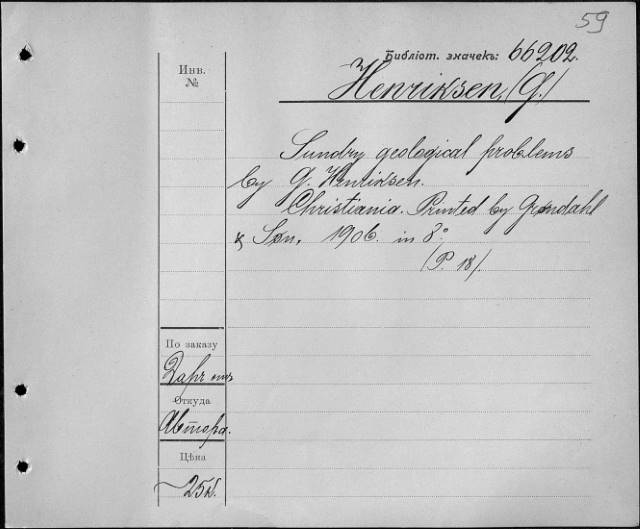 59
Библіот. значекъ: 66202.
Henriksen, (G.)
Инв.
№
Sundry geological problems
by G. Henriksen.
Christiania. Printed by Grøndahl
& Søn, 1906. in 8°.
(P. 18).
По заказу
Даръ отъ
Откуда
Автора.
Цѣна
25к.